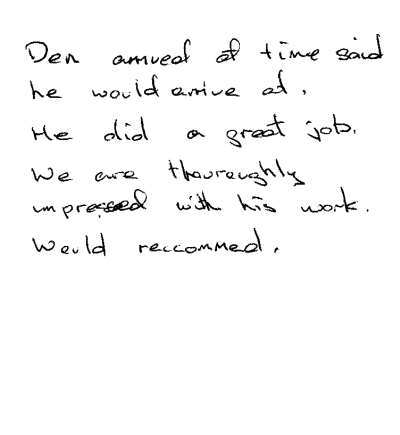 Den arrived at time said
he would arrive at.
He did a great job.
We are thouroughly
impressed with his work.
Would reccommed.